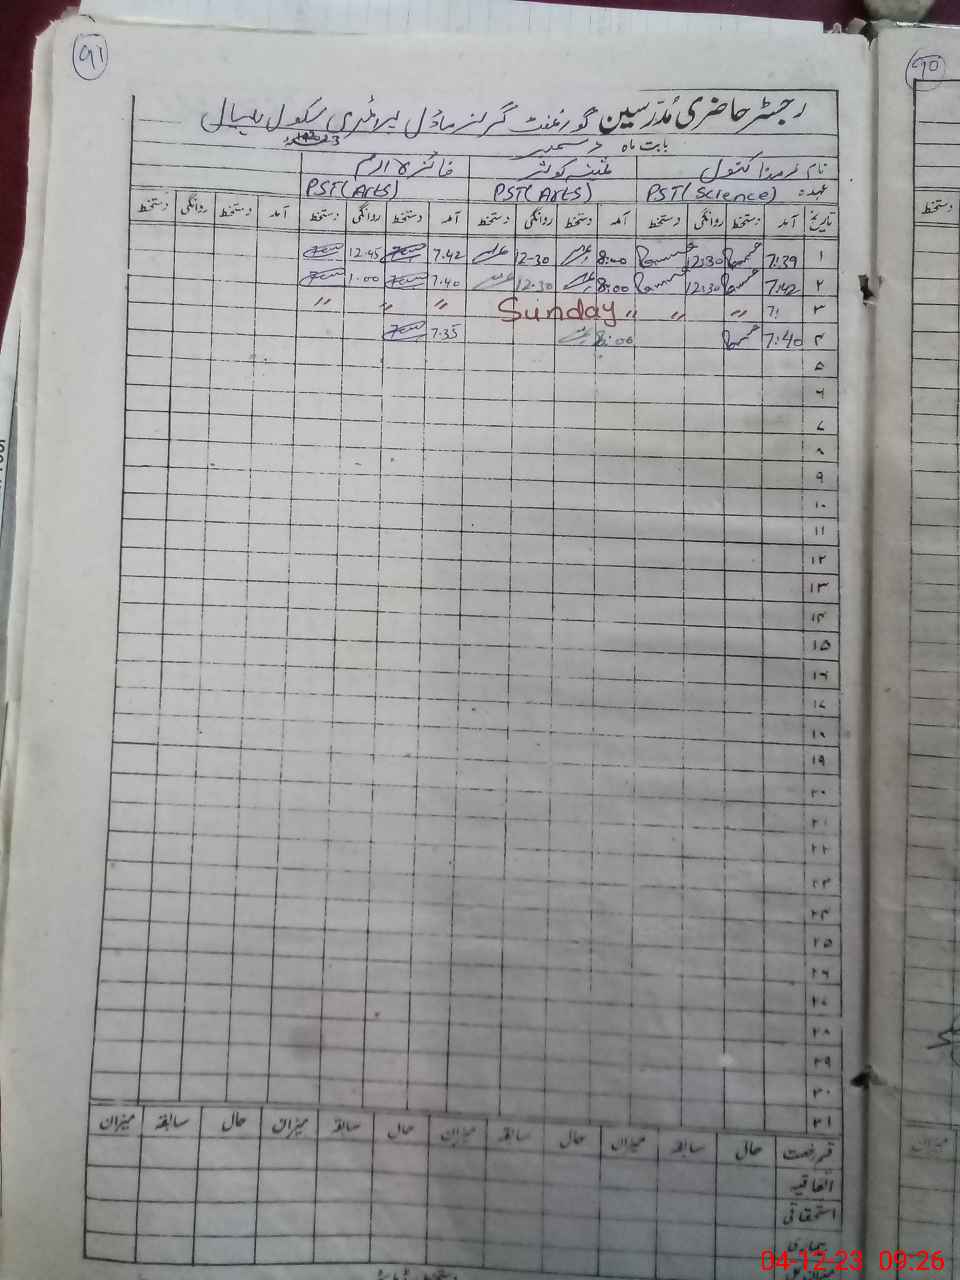 91
90
رجسٹر حاضری مُدرّسین گورنمنٹ گرلز ماڈل پرائمری سکول
بابت ماہ دسمبر 23
نام
PST(Science) PST(Arts) PST(Arts)
تاریخ آمد دستخط روانگی دستخط آمد دستخط روانگی دستخط آمد دستخط روانگی دستخط آمد دستخط روانگی دستخط
دستخط
۱ 7:39 12:30 8:00 12-30 7.42 12.45
۲ 7:42 12:30 8:00 12.30 7.40 1.00
۳ 〃 〃 〃 Sunday 〃 〃 〃
۴ 7:40 8:00 7.35
۵
۶
۷
۸
۹
۱۰
۱۱
۱۲
۱۳
۱۴
۱۵
۱۶
۱۷
۱۸
۱۹
۲۰
۲۱
۲۲
۲۳
۲۴
۲۵
۲۶
۲۷
۲۸
۲۹
۳۰
۳۱
قسم رخصت حال سابقہ میزان حال سابقہ میزان حال سابقہ میزان حال سابقہ میزان
میزان
اتفاقیہ
استحقاقی
بیماری
04-12-23 09:26